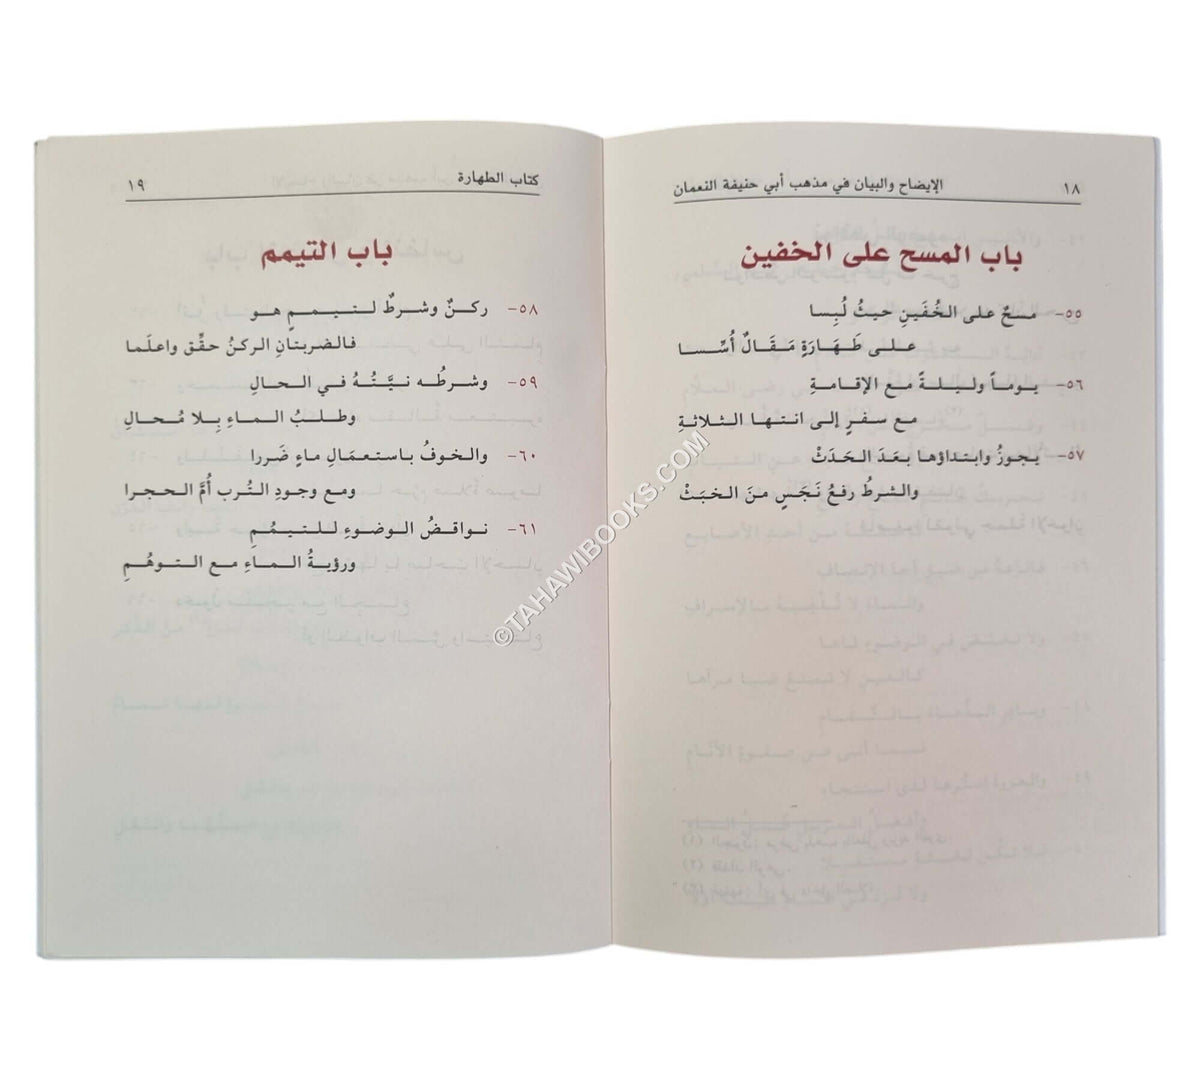 ١٨ الإيضاح والبيان في مذهب أبي حنيفة النعمان
باب المسح على الخفين
٥٥- مسحٌ على الخُفَينِ حيثُ لُبِسا
على طَهَارَةٍ مَقَالٌ أُسِّسا
٥٦- يوماً وليلةً مع الإقامةِ
مع سفرٍ إلى انتها الثلاثةِ
٥٧- يجوزُ وابتداؤها بعدَ الحَدَثْ
والشرطُ رفعُ نَجَسٍ منَ الخبَثْ
كتاب الطهارة ١٩
باب التيمم
٥٨- ركنٌ وشرطٌ لتيممٍ هو
فالضربتانِ الركنُ حقِّق واعلَما
٥٩- وشرطُه نيَّتُهُ في الحالِ
وطلبُ الماءِ بِلا مُحالِ
٦٠- والخوفُ باستعمَالِ ماءٍ ضَررا
ومع وجودِ التُرب أُمَّ الحجرا
٦١- نواقضُ الوضوءِ للتيمُمِ
ورؤيةُ الماءِ مع التوهُمِ
©TAHAWIBOOKS.COM